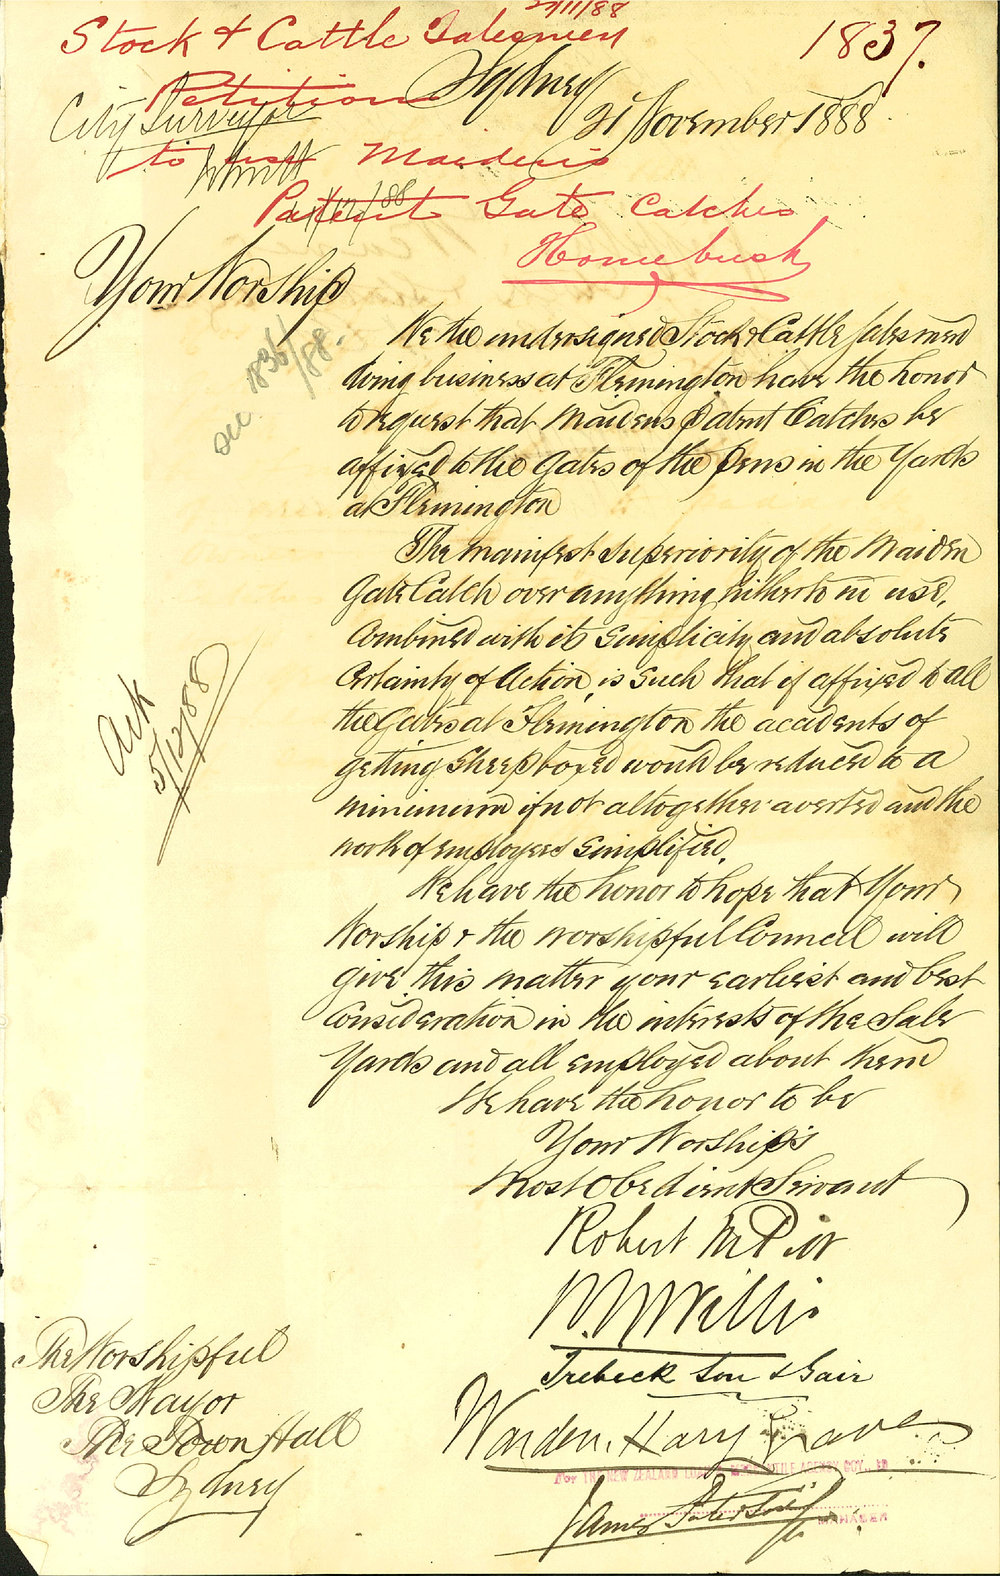 27/11/88
Stock & Cattle Salesmen
1837.
Petition
Sydney
City Surveyor
21 November 1888
to use Maiden's
Patent Gate Catches
Homebush
Your Worship
see 1836/88.
We the undersigned Stock & Cattle Salesmen
doing business at Flemington have the honor
to request that Maidens Patent Catches be
affixed to the Gates of the Pens in the Yards
at Flemington
The manifest Superiority of the Maiden
Gate Catch over anything hitherto in use,
Combined with its Simplicity and absolute
Certainty of Action, is Such that if affixed to all
the Gates at Flemington the accidents of
getting Sheep boxed would be reduced to a
minimum if not altogether averted and the
work of employees Simplified.
Ack
5/12/88
We have the honor to hope that Your
Worship & the worshipful Council will
give this matter your earliest and best
Consideration in the interests of the Sale
Yards and all employed about them
We have the honor to be
Your Worship's
Most Obedient Servant
Robert
Willis
Trebeck Son & Gair
Warden, Harry Graves
For THE NEW ZEALAND LOAN & MERCANTILE AGENCY COY., LD
James Paterson
MANAGER
The Worshipful
The Mayor
The Town Hall
Sydney